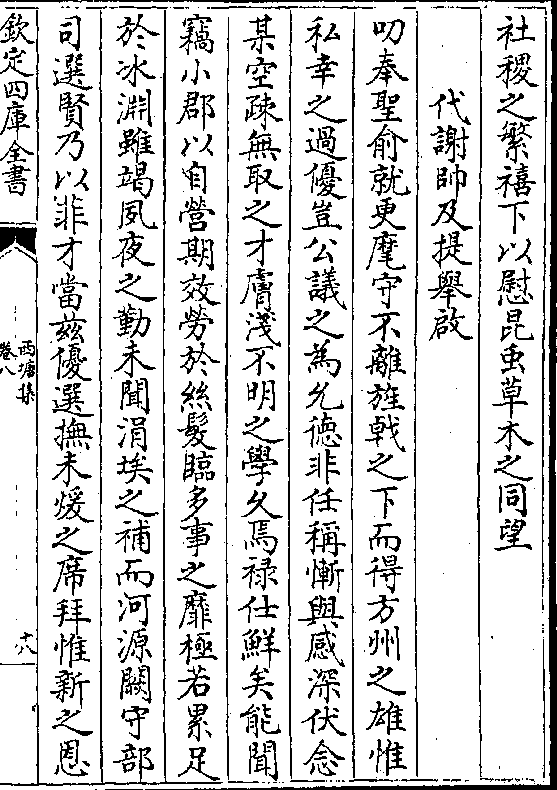 社稷之繁禧下以慰昆虫草木之同望
代謝帥及提舉啟
叨奉聖俞就更麾守不離旌戟之下而得方州之雄惟
私幸之過優豈公議之為允德非任稱慚與感深伏念
某空疎無取之才膚淺不明之學久焉禄仕鮮矣能聞
竊小郡以自營期效勞於絲髮臨多事之靡極若累足
於冰淵雖竭夙夜之勤未聞涓埃之補而河源闕守部
司選賢乃以菲才當兹優選撫未煖之席拜惟新之恩
欽定四庫全書
西塘集
卷八
十八